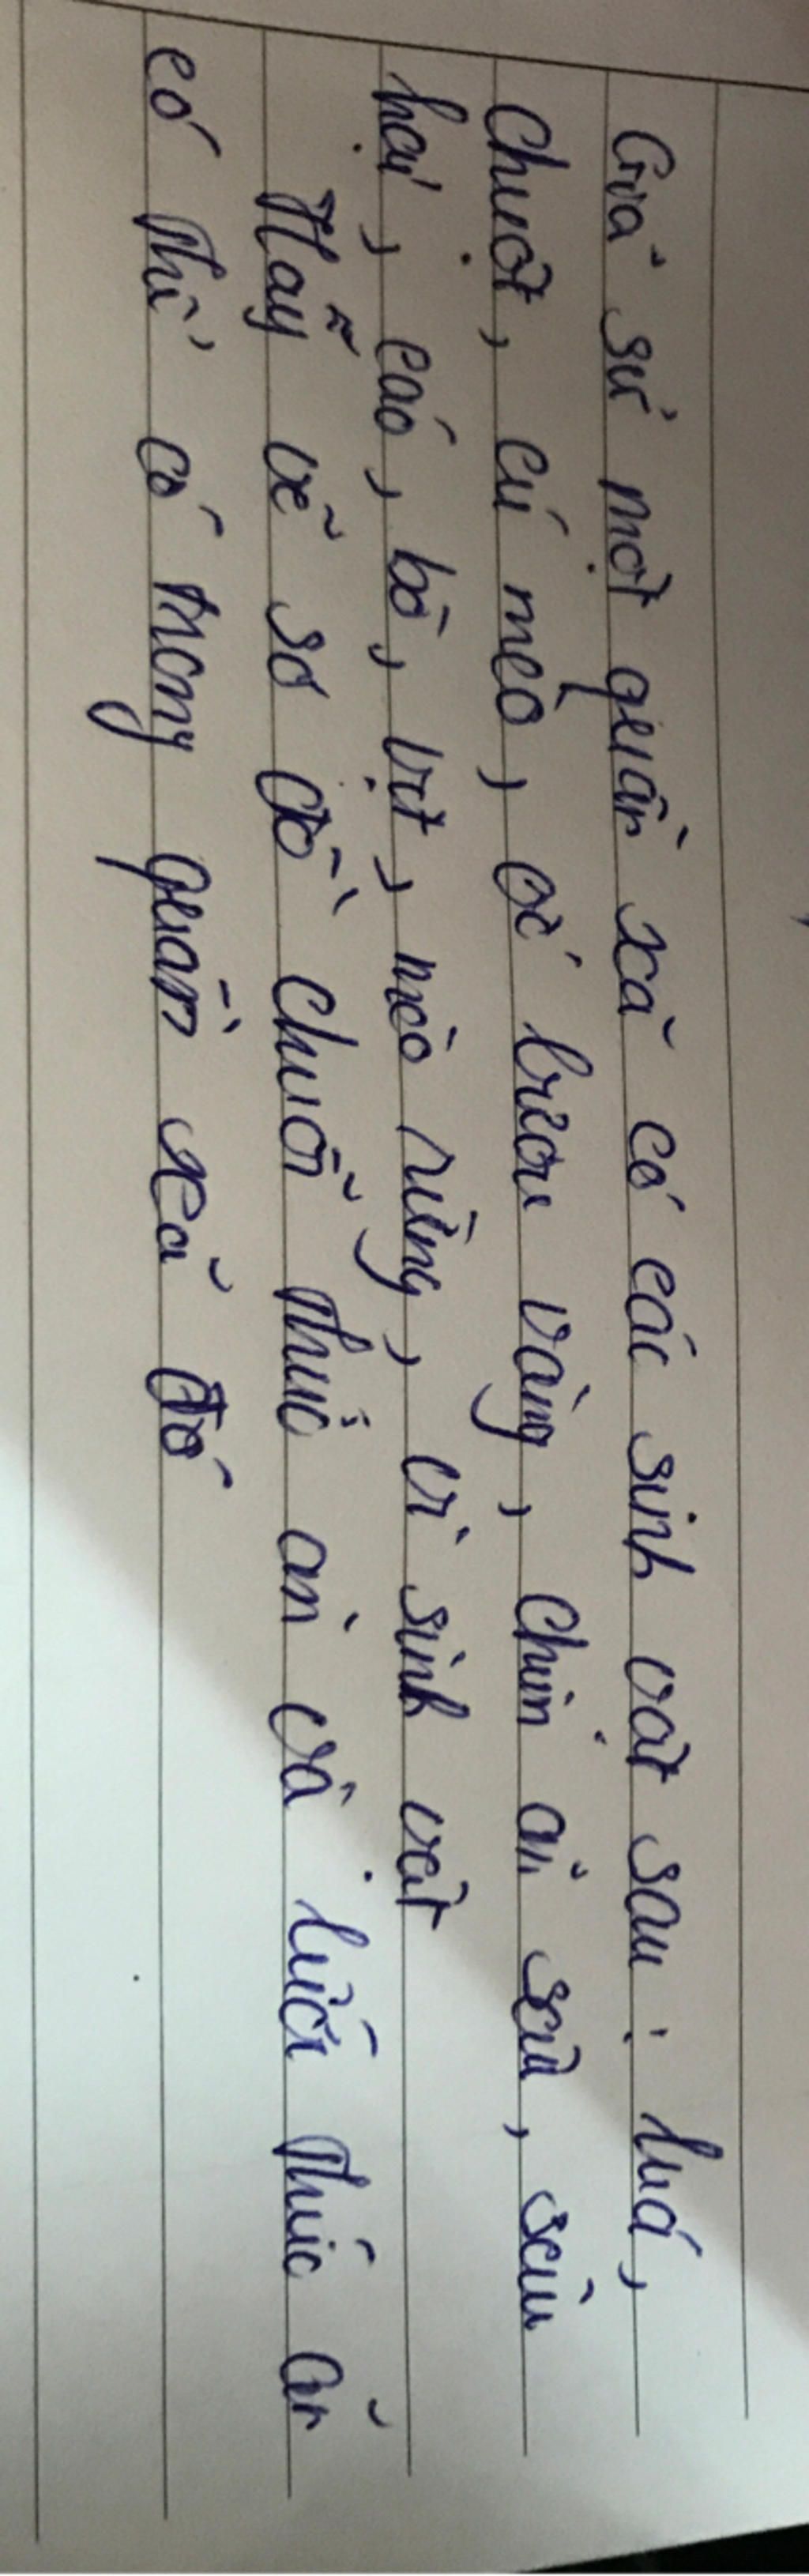 Giả sử một quần xã có các sinh vật sau: lúa,
chuột, cú mèo, ốc bươu vàng, chim ăn sâu, sâu
hại, cáo, bò, vịt, mèo rừng, vi sinh vật
Hãy vẽ sơ đồ chuỗi thức ăn và lưới thức ăn
có thể có trong quần xã đó